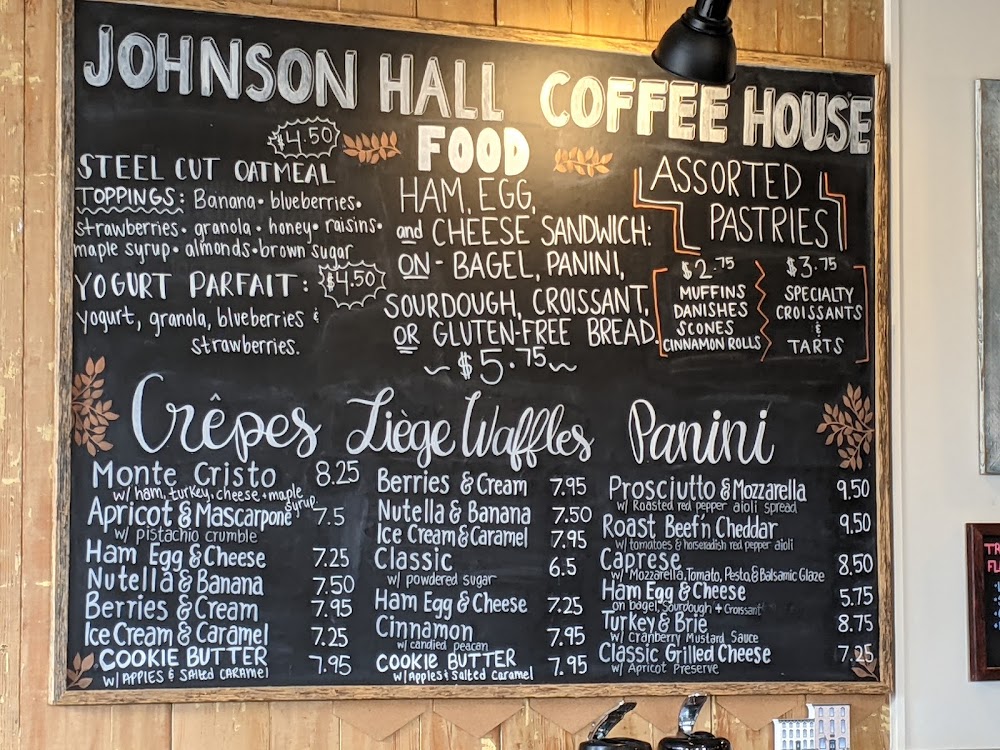 JOHNSON HALL COFFEE HOUSE
FOOD
$4.50
STEEL CUT OATMEAL
TOPPINGS: Banana • blueberries •
strawberries • granola • honey • raisins •
maple syrup • almonds • brown sugar
YOGURT PARFAIT: $4.50
yogurt, granola, blueberries &
strawberries.
HAM, EGG,
and CHEESE SANDWICH:
ON - BAGEL, PANINI,
SOURDOUGH, CROISSANT,
OR GLUTEN-FREE BREAD.
~ $5.75 ~
ASSORTED
PASTRIES
$2.75
MUFFINS
DANISHES
SCONES
CINNAMON ROLLS
$3.75
SPECIALTY
CROISSANTS
&
TARTS
Crêpes
Monte Cristo 8.25
w/ ham, turkey, cheese + maple
syrup
Apricot & Mascarpone 7.5
w/ pistachio crumble
Ham Egg & Cheese 7.25
Nutella & Banana 7.50
Berries & Cream 7.95
Ice Cream & Caramel 7.25
COOKIE BUTTER 7.95
w/ APPLES & SAlted CARAMEl
Liège Waffles
Berries & Cream 7.95
Nutella & Banana 7.50
Ice Cream & Caramel 7.95
Classic 6.5
w/ powdered sugar
Ham Egg & Cheese 7.25
Cinnamon 7.95
w/ candied peacan
COOKIE BUTTER 7.95
w/ Apples & Salted Caramel
Panini
Prosciutto & Mozzarella 9.50
w/ Roasted red pepper aioli spread
Roast Beef'n Cheddar 9.50
w/ tomatoes & horseradish red pepper aioli
Caprese 8.50
w/ Mozzarella, Tomato, Pesto, & Balsamic Glaze
Ham Egg & Cheese 5.75
on bagel, Sourdough + Croissant
Turkey & Brie 8.75
w/ Cranberry Mustard Sauce
Classic Grilled Cheese 7.25
w/ Apricot Preserve